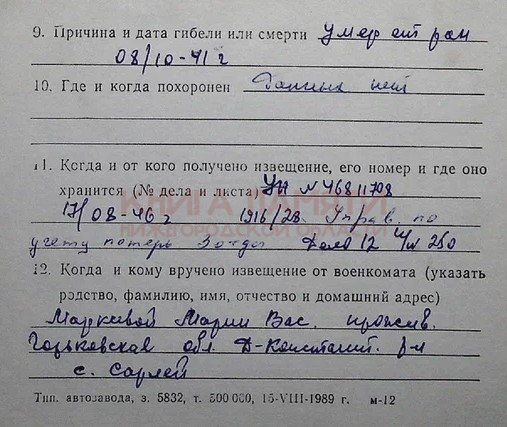 9. Причина и дата гибели или смерти умер от ран
08/10-41 г
10. Где и когда похоронен Данных нет
11. Когда и от кого получено извещение, его номер и где оно
хранится (№ дела и листа) № 46811708
КНИГА ПАМЯТИ
17/08-46 г 1916/28. Управ. по
НИЖЕГОРОДСКОЙ ОБЛАСТИ
учету потерь Дело 12 250
12. Когда и кому вручено извещение от военкомата (указать
родство, фамилию, имя, отчество и домашний адрес)
Маркивой Марии Вас. прожив.
Горьковская обл. Д-Констант. р-н
с. Сарлей
Тип. автозавода, з. 5832, т. 500 000, 15-VIII-1989 г. м-12